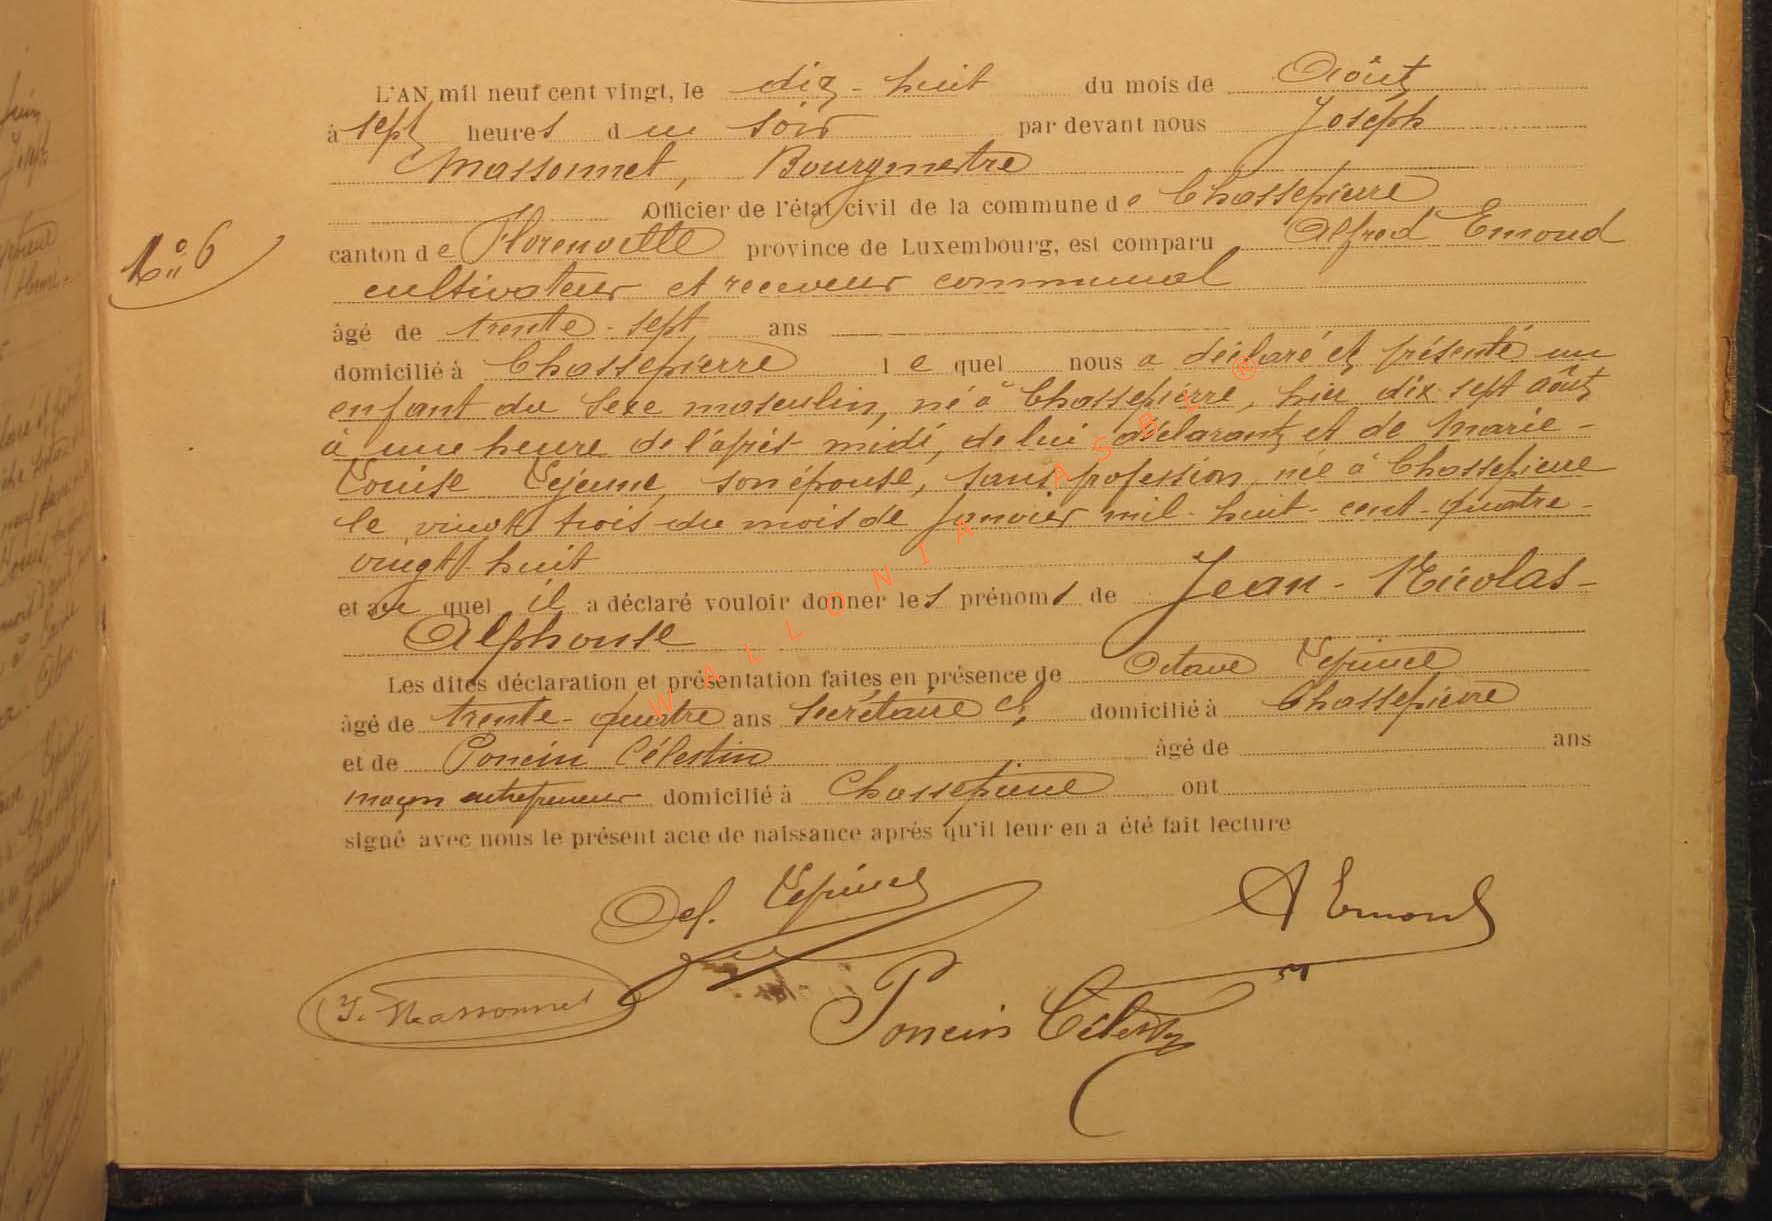 L'AN mil neuf cent vingt, le dix-huit du mois de Août
à sept heures du soir par devant nous Joseph
Massonnet, Bourgmestre
Officier de l'état civil de la commune de Chassepierre
N° 6
canton de Florenville province de Luxembourg, est comparu Alfred Emond
cultivateur et receveur communal
âgé de trente-sept ans
domicilié à Chassepierre lequel nous a déclaré et présenté un
enfant du sexe masculin, né à Chassepierre, hier dix-sept août
à une heure de l'après midi, de lui déclarant et de Marie-
Louise Lejeune, son épouse, sans profession, née à Chassepierre
le vingt trois du mois de janvier mil-huit-cent-quatre-
vingt huit
et au quel il a déclaré vouloir donner les prénoms de Jean-Nicolas-
Alphonse
Les dites déclaration et présentation faites en présence de Octave Lepinel
âgé de trente-quatre ans Secrétaire Cl domicilié à Chassepierre
et de Poncin Célestin âgé de ans
maçon entrepreneur domicilié à Chassepierre ont
signé avec nous le présent acte de naissance après qu'il leur en a été fait lecture
Lepinel
A Emond
J. Massonnet
Poncin Célestin
WALLONIA ASBL ®